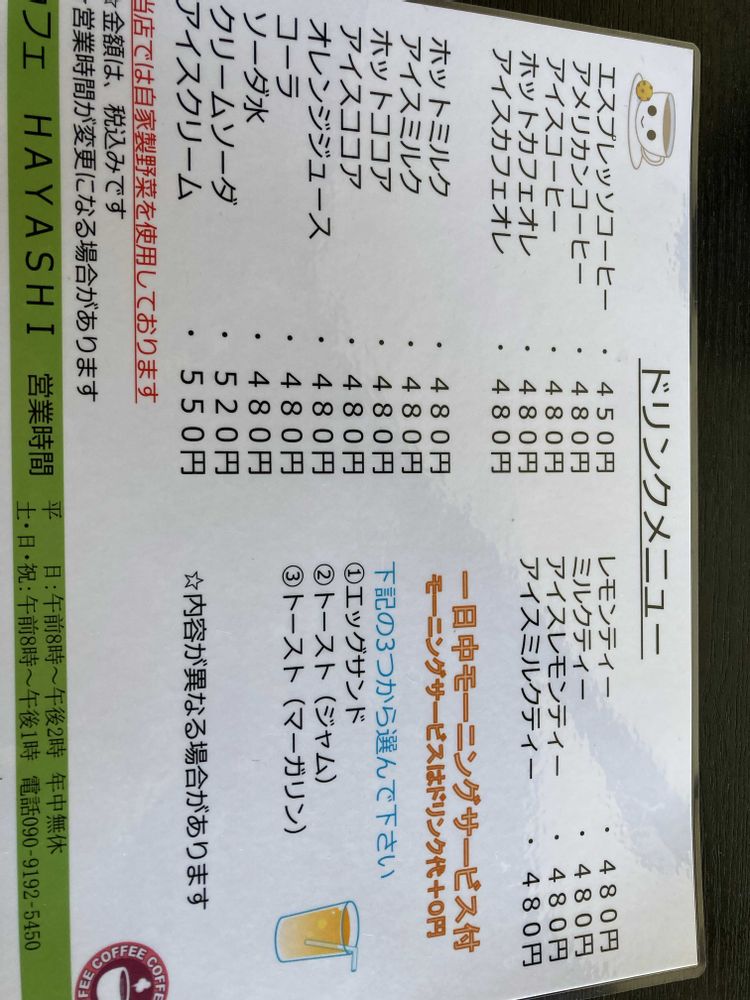 ドリンクメニュー
エスプレッソコーヒー ・450円
アメリカンコーヒー ・480円
アイスコーヒー ・480円
ホットカフェオレ ・480円
アイスカフェオレ ・480円
ホットミルク ・480円
アイスミルク ・480円
ホットココア ・480円
アイスココア ・480円
オレンジジュース ・480円
コーラ ・480円
ソーダ水 ・480円
クリームソーダ ・520円
アイスクリーム ・550円
レモンティー ・480円
ミルクティー ・480円
アイスレモンティー ・480円
アイスミルクティー ・480円
一日中モーニングサービス付
モーニングサービスはドリンク代+0円
下記の3つから選んで下さい
①エッグサンド
②トースト（ジャム）
③トースト（マーガリン）
☆内容が異なる場合があります
当店では自家製野菜を使用しております
☆金額は、税込みです
営業時間が変更になる場合があります
フェ HAYASHI 営業時間
平 日:午前8時～午後2時 年中無休
土・日・祝:午前8時～午後1時 電話090-9192-5450
COFFEE COFFEE